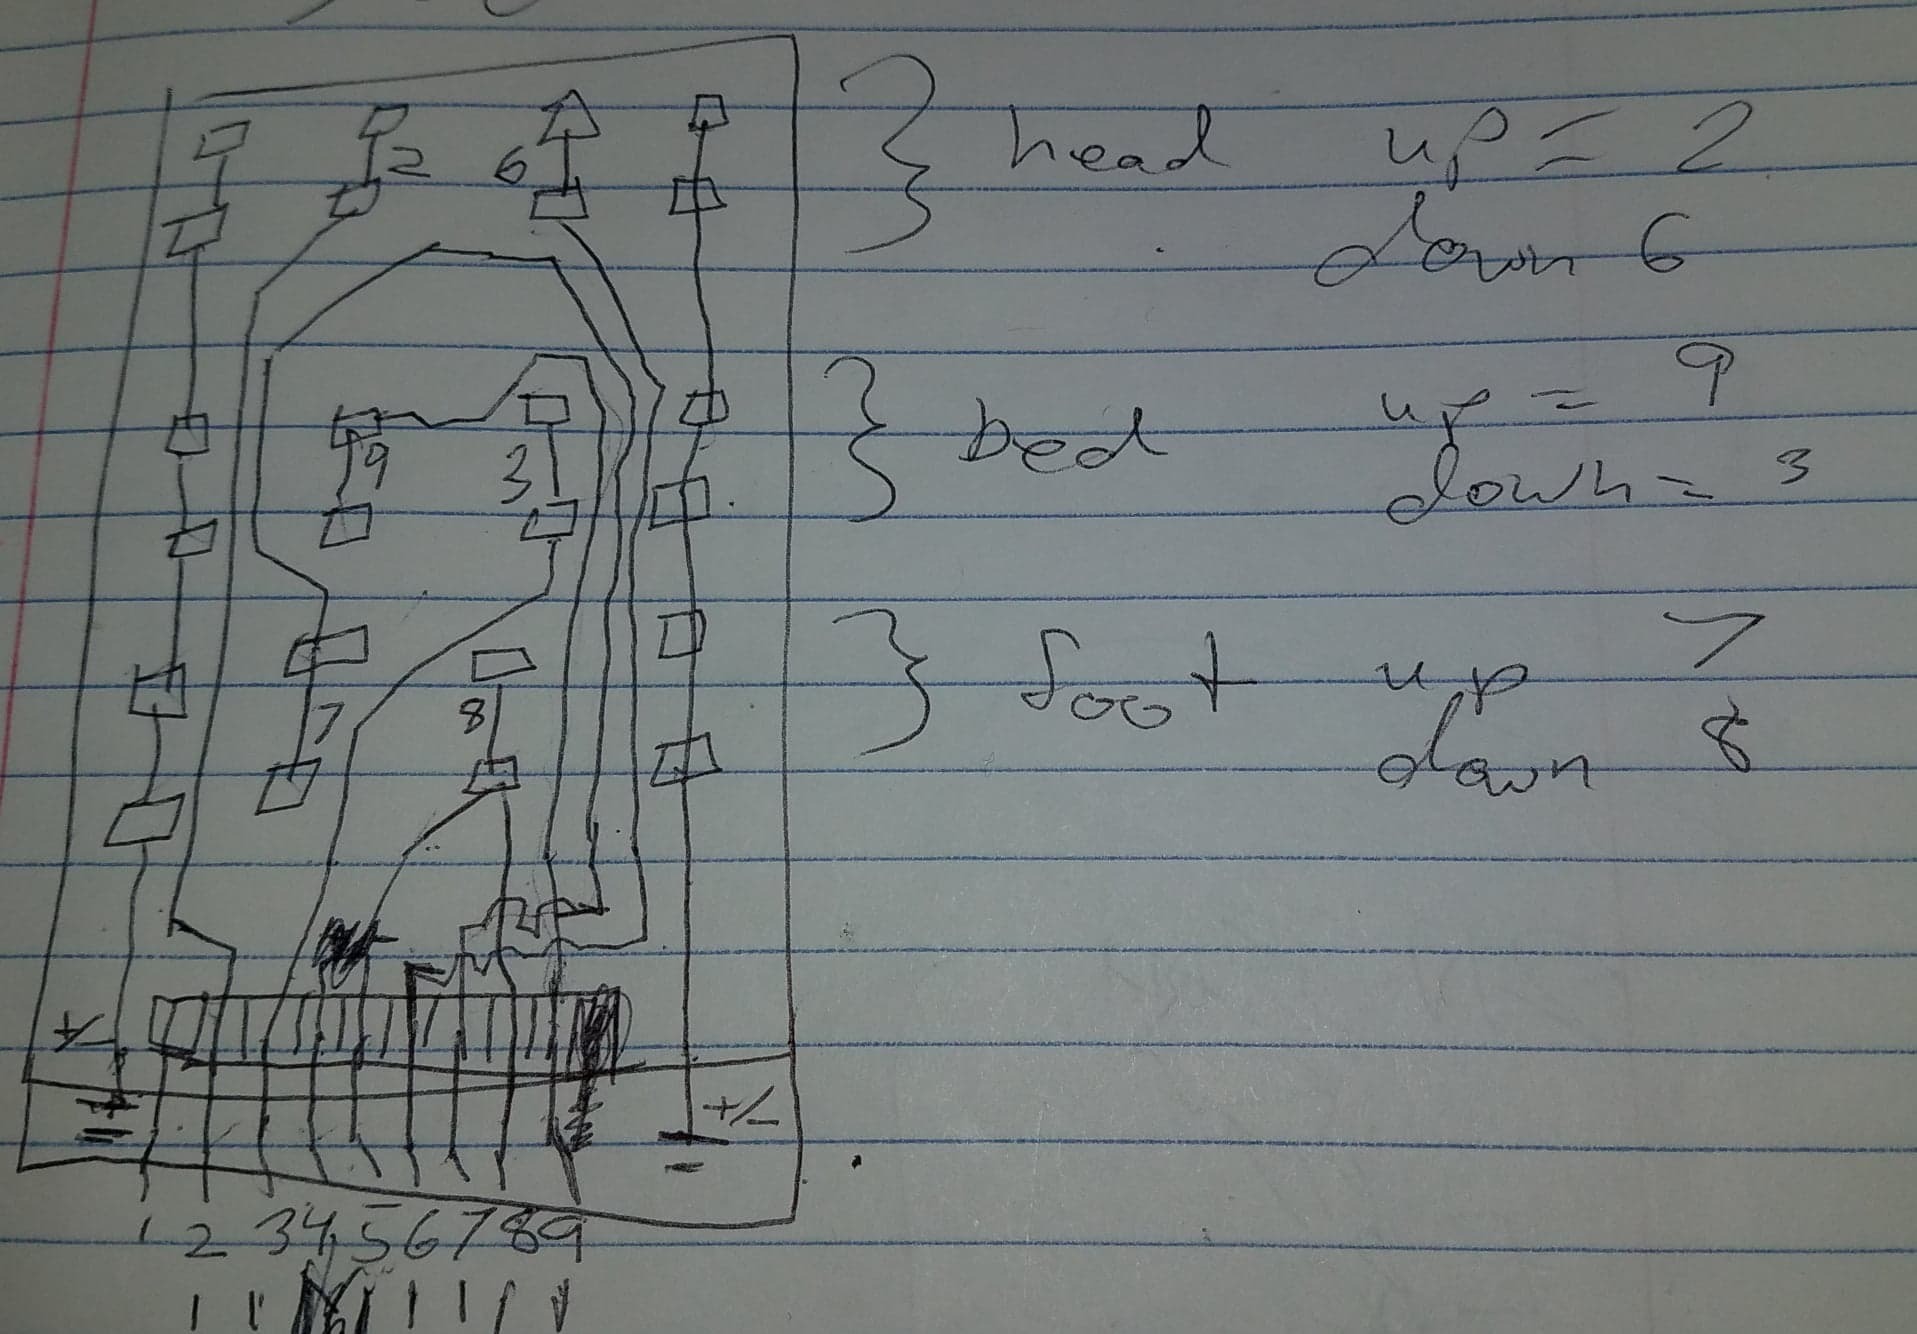 2 6
head up = 2
down 6
9 3
bed up = 9
down = 3
7 8
foot up 7
down 8
+/-
+/-
1 2 3 4 5 6 7 8 9